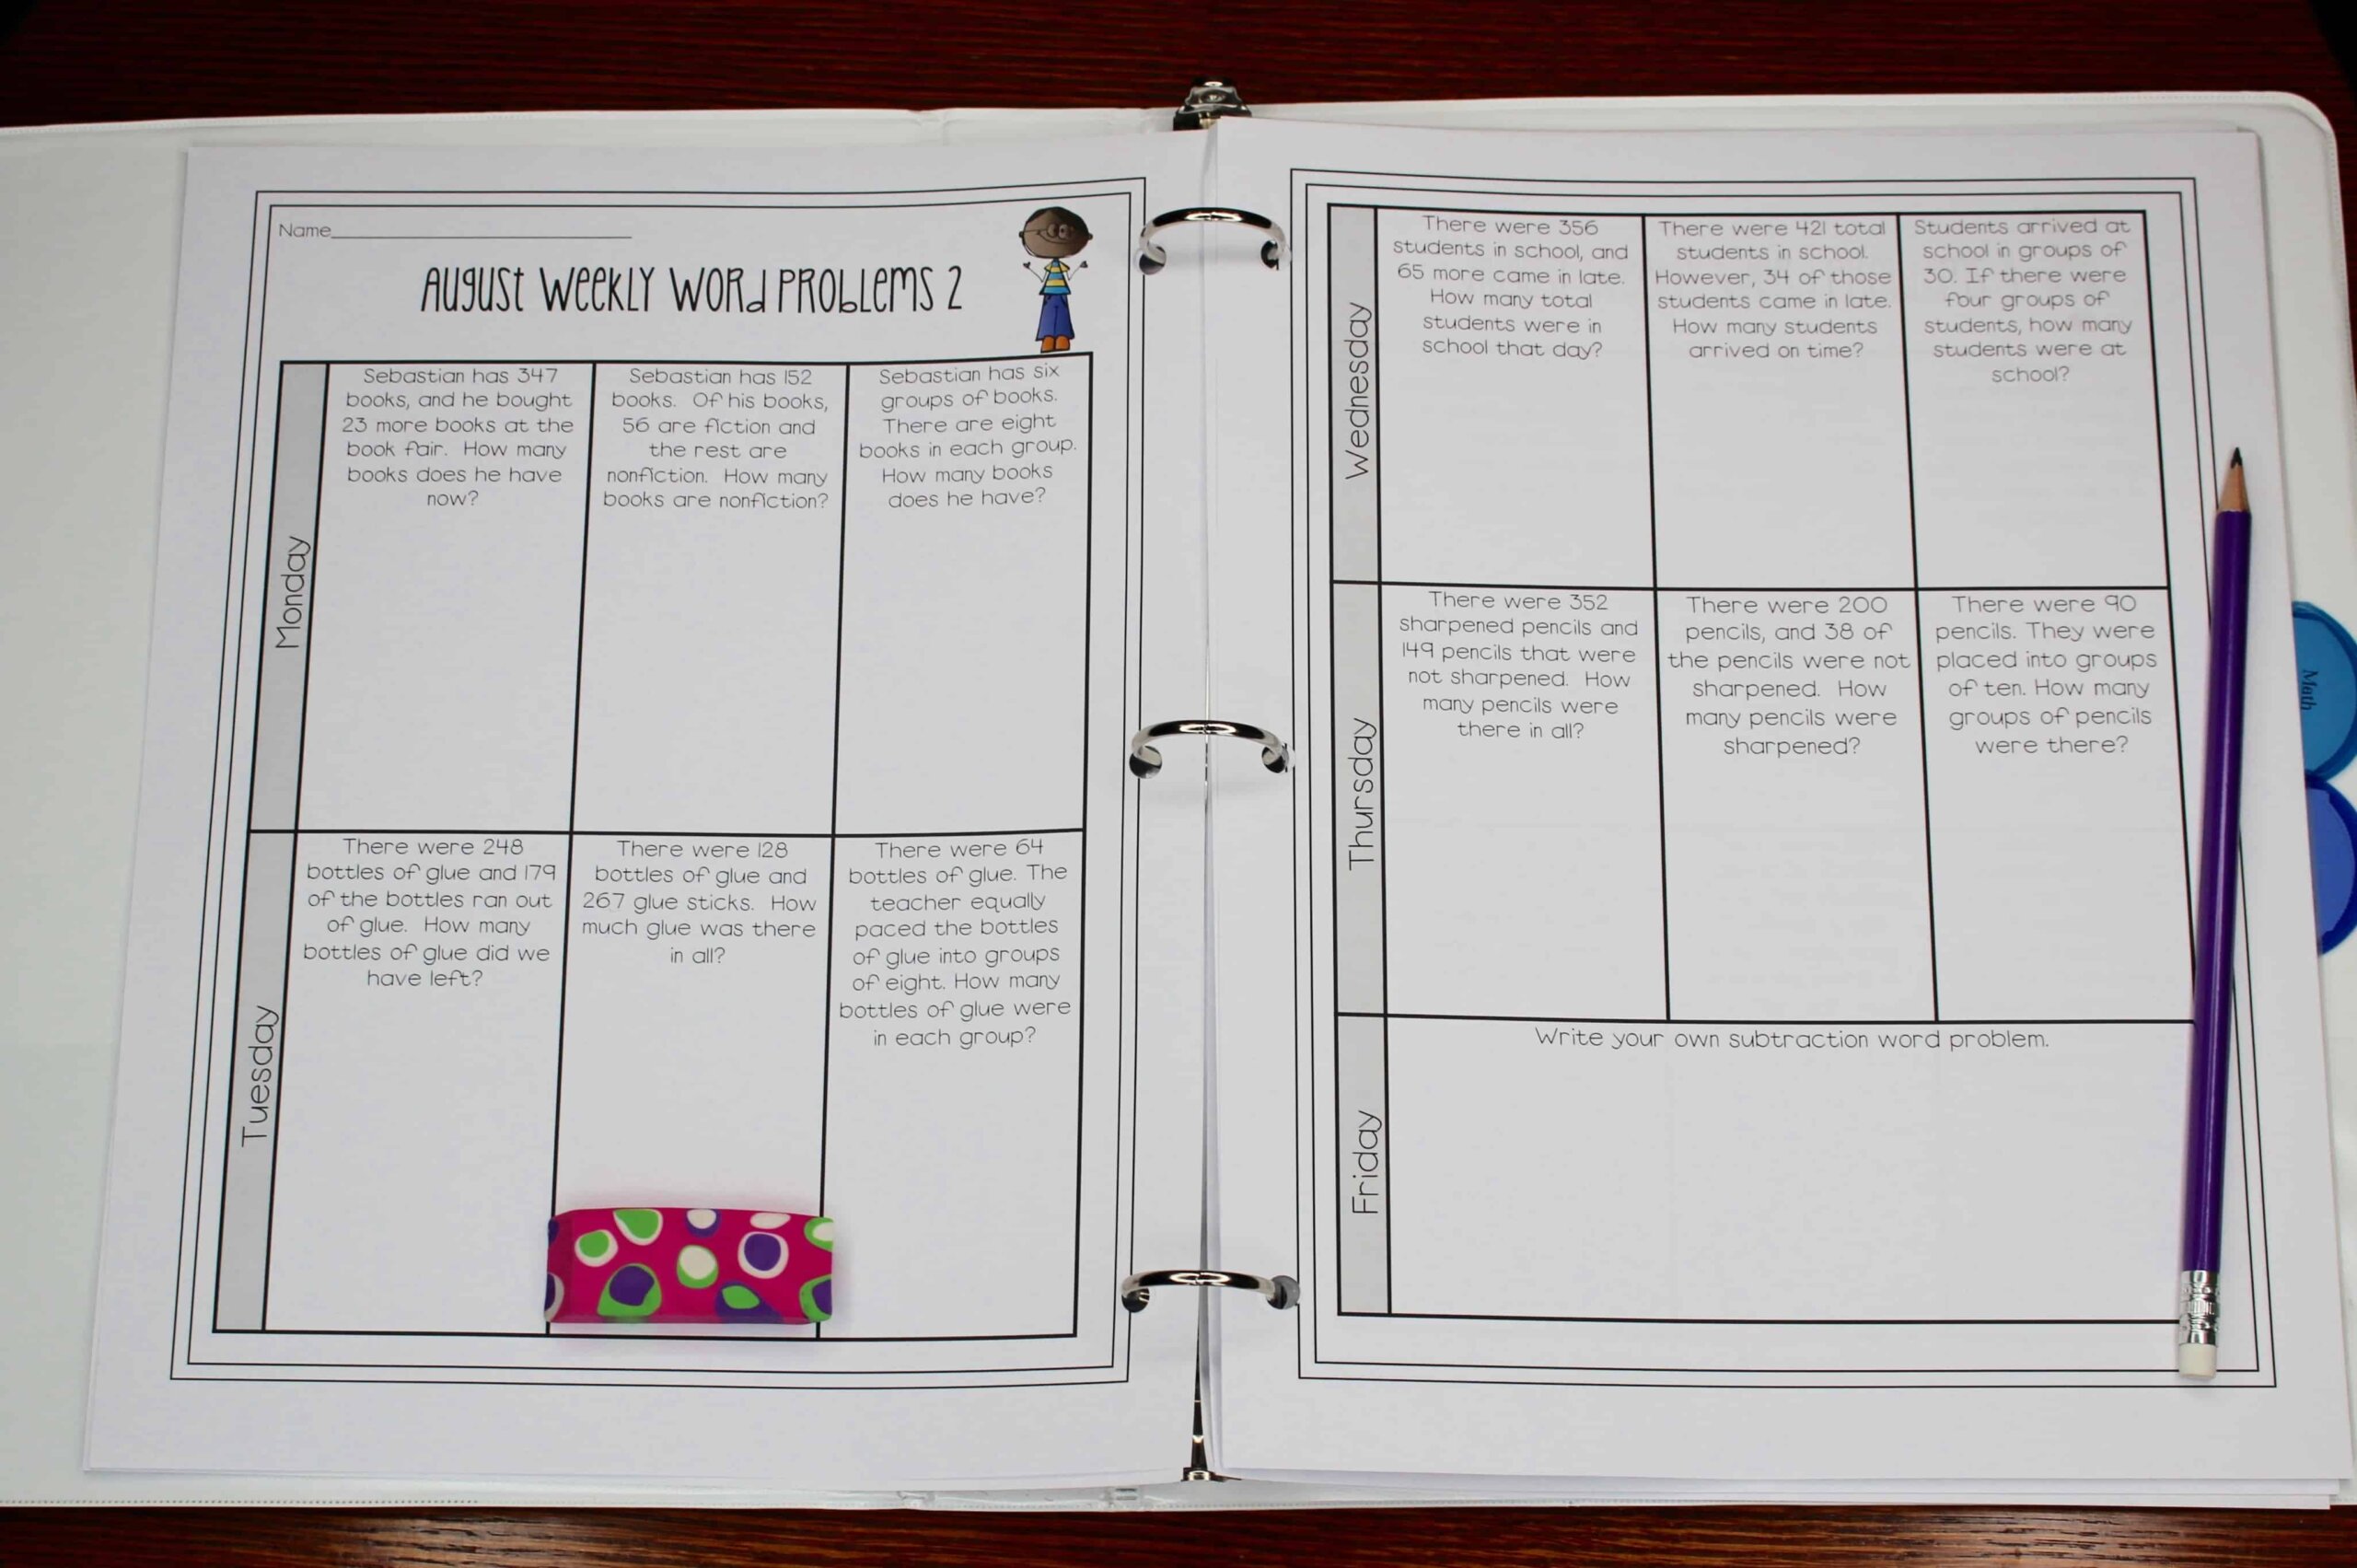 Name
August Weekly Word Problems 2
Monday
Sebastian has 347
books, and he bought
23 more books at the
book fair. How many
books does he have
now?
Sebastian has 152
books. Of his books,
56 are fiction and
the rest are
nonfiction. How many
books are nonfiction?
Sebastian has six
groups of books.
There are eight
books in each group.
How many books
does he have?
Tuesday
There were 248
bottles of glue and 179
of the bottles ran out
of glue. How many
bottles of glue did we
have left?
There were 128
bottles of glue and
267 glue sticks. How
much glue was there
in all?
There were 64
bottles of glue. The
teacher equally
paced the bottles
of glue into groups
of eight. How many
bottles of glue were
in each group?
Wednesday
There were 356
students in school, and
65 more came in late.
How many total
students were in
school that day?
There were 421 total
students in school.
However, 34 of those
students came in late.
How many students
arrived on time?
Students arrived at
school in groups of
30. If there were
four groups of
students, how many
students were at
school?
Thursday
There were 352
sharpened pencils and
149 pencils that were
not sharpened. How
many pencils were
there in all?
There were 200
pencils, and 38 of
the pencils were not
sharpened. How
many pencils were
sharpened?
There were 90
pencils. They were
placed into groups
of ten. How many
groups of pencils
were there?
Friday
Write your own subtraction word problem.
Math